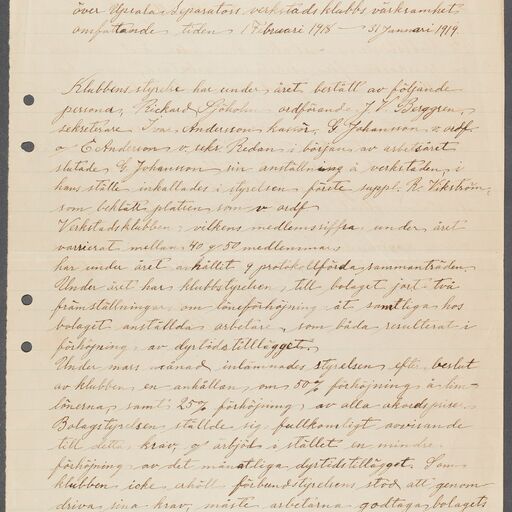 över Upsala Separators verkstadsklubbs värksamhet
omfattande tiden 1 Februari 1918 – 31 Januari 1919.
Klubbens styrelse har under året bestått av följande
persona, Rickard Sjöholm ordförande J. V. Berggren,
sekreterare Ivar Andersson kasör. G Johansson v. ordf.
o E Anderson v. sekr. Redan i början av arbetsåret
slutade G. Johansson sin anställning å verkstaden, i
hans ställe inkallades i styrelsen förste suppl. R. Vikström,
som beklätt platsen som v ordf
Verkstadsklubben, vilkens medlemssiffra under året
varierat mellan 40 g 50 medlemmar
har under året avhållet 9 protokollförda sammanträden.
Under året har klubbstyrelsen till bolaget gort två
främställningar om löneförhöjning åt samtliga hos
bolaget anställda arbetare, som båda resulterat i
förhöjning av dyrtidstillägget.
Under mars månad inlämnades styrelsen efter beslut
av klubben en anhållan om 50% förhöjning å tim-
lönerna, samt 25% förhöjning av alla akordspriser.
Bolagstyrelsen ställde sig fullkomligt avvisande
till detta krav, g ärbjöd i stället en mindre
förhöjning av det månatliga dyrtidstillägget. Som
klubben icke erhöll förbundstyrelsens stöd att genom
driva sina krav, måste arbetarna godtaga bolagets